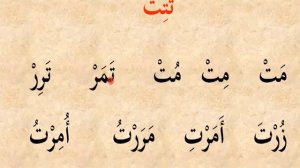 تَتِتُ
مَتْ مِتْ مُتْ تَمَرْ تَرِرْ
زُرْتَ أَمَرْتِ مَرَرْتُ أُمِرْتُ